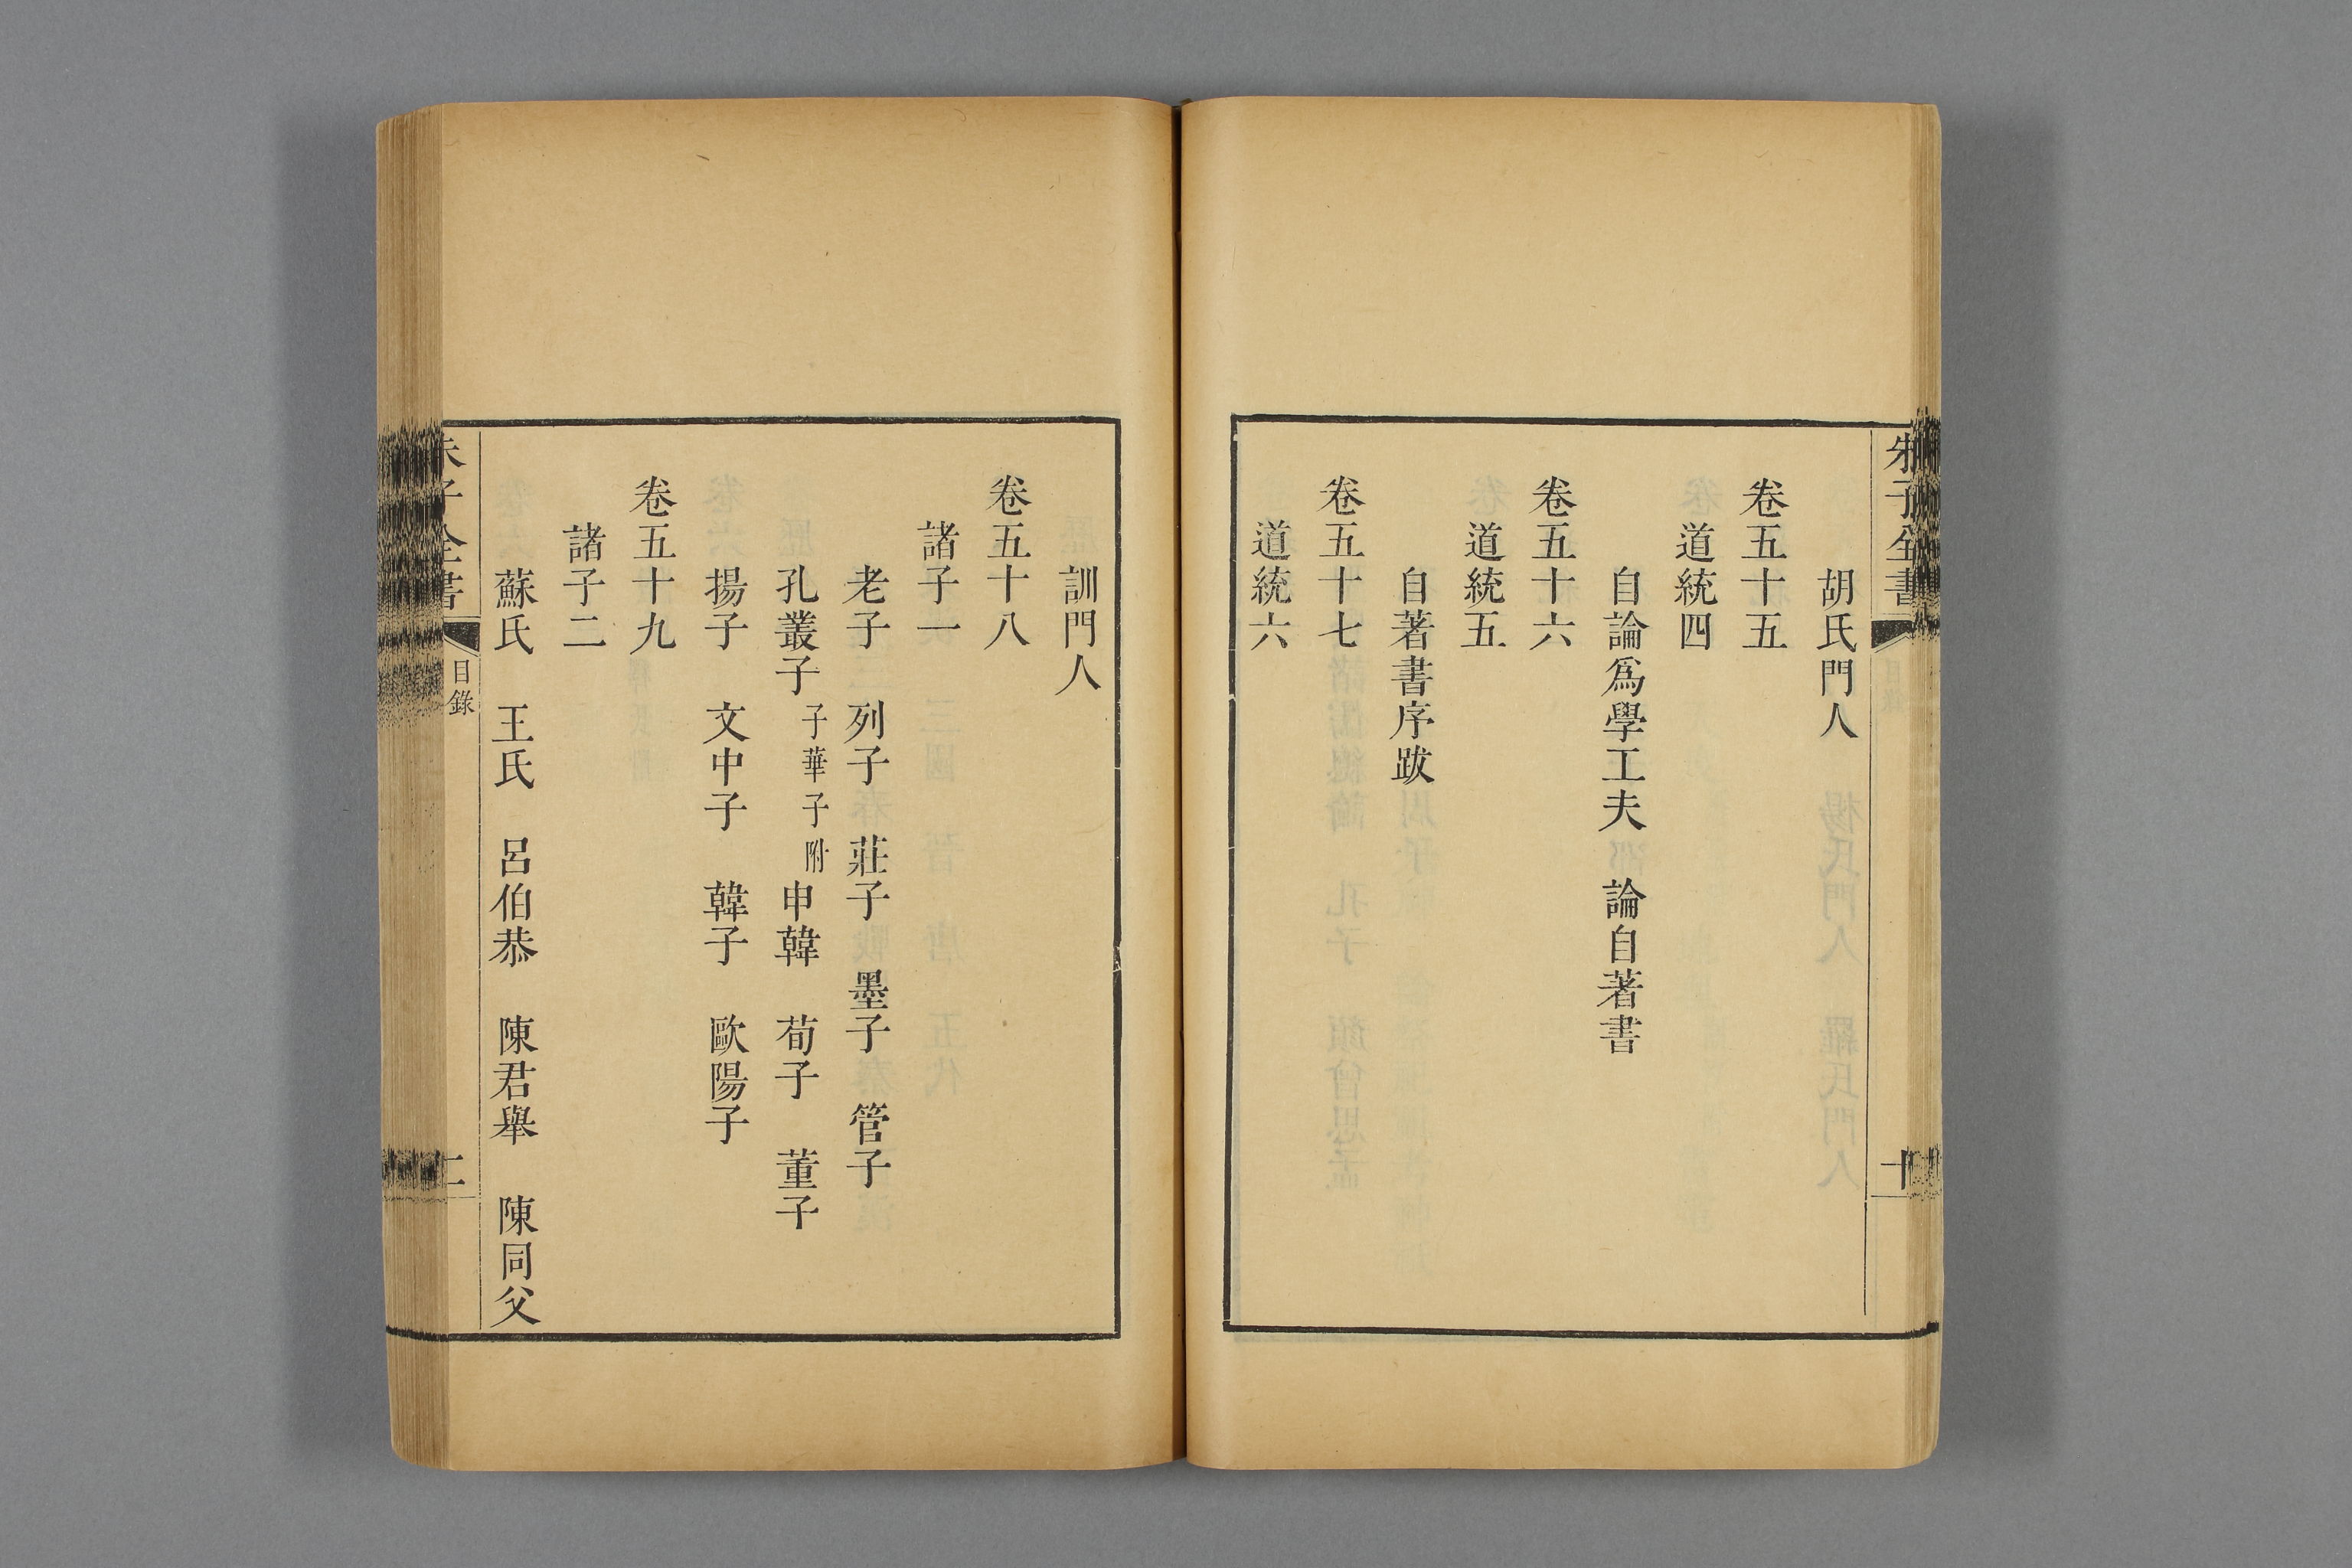 朱子全書
十
胡氏門人
卷五十五
道統四
自論爲學工夫　論自著書
卷五十六
道統五
自著書序跋
卷五十七
道統六
訓門人
卷五十八
諸子一
老子　列子　莊子　墨子　管子
孔叢子　子華子附　申韓　荀子　董子
揚子　文中子　韓子　歐陽子
卷五十九
諸子二
蘇氏　王氏　呂伯恭　陳君舉　陳同父
朱子全書
目錄